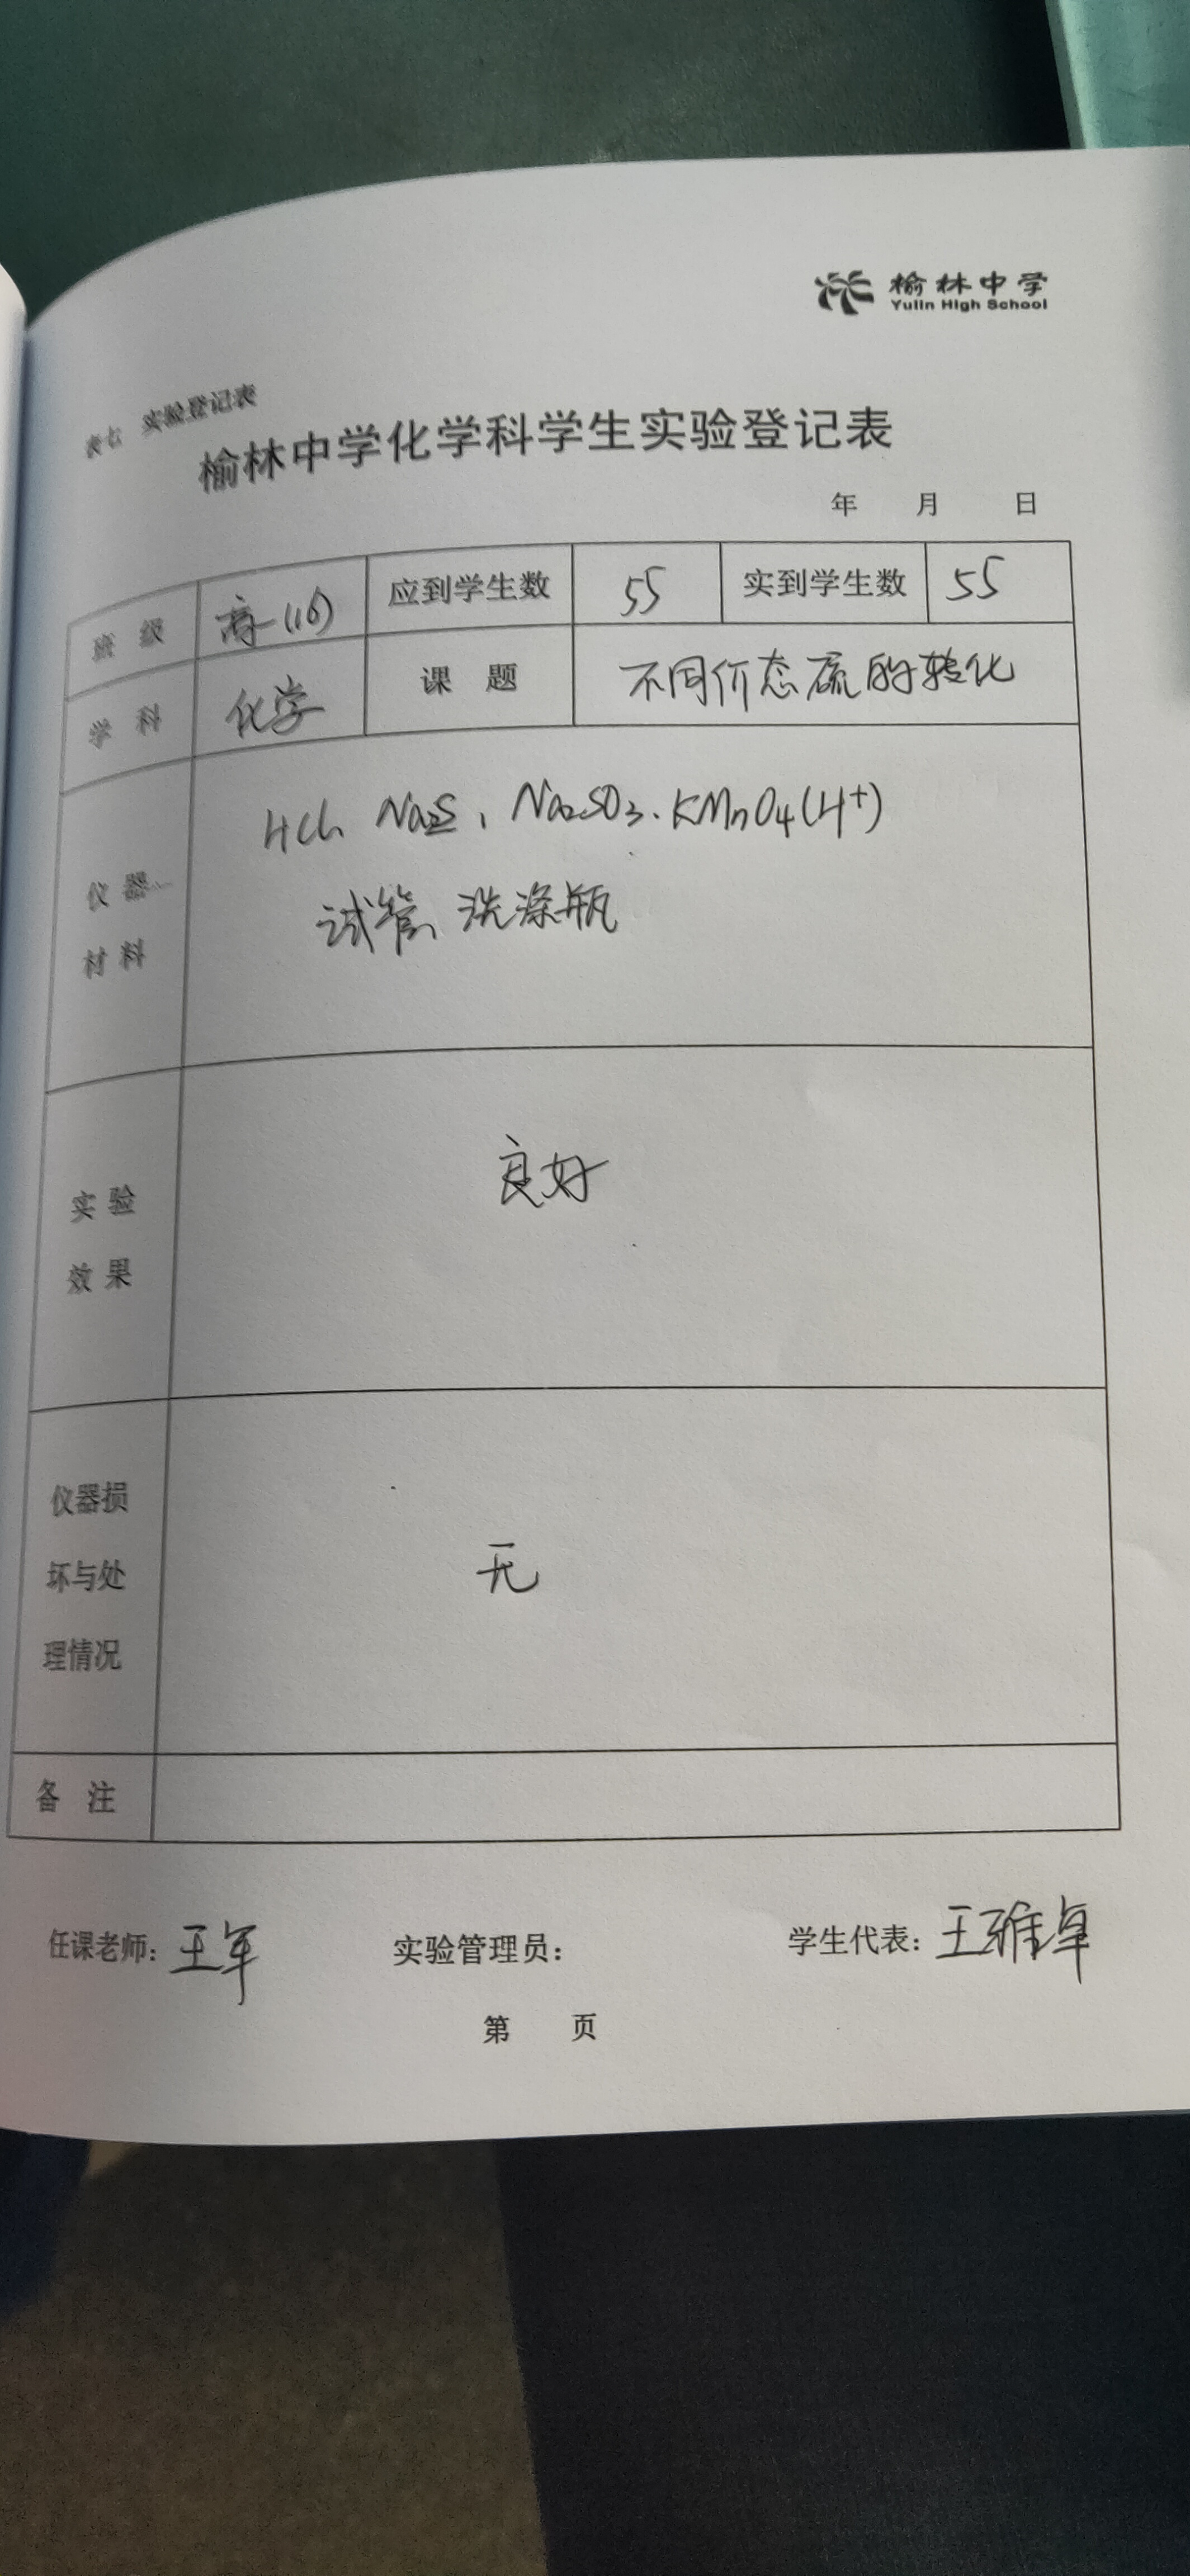 榆林中学
Yulin High School
表七 实验登记表
榆林中学化学科学生实验登记表
年 月 日
班 级 高一(16) 应到学生数 55 实到学生数 55
学 科 化学 课 题 不同价态硫的转化
仪 器
材 料
HCl、Na2S、Na2SO3、KMnO4(H+)
试管、洗涤瓶
实 验
效 果
良好
仪器损
坏与处
理情况
无
备 注
任课老师：王军 实验管理员： 学生代表：王雅卓
第 页